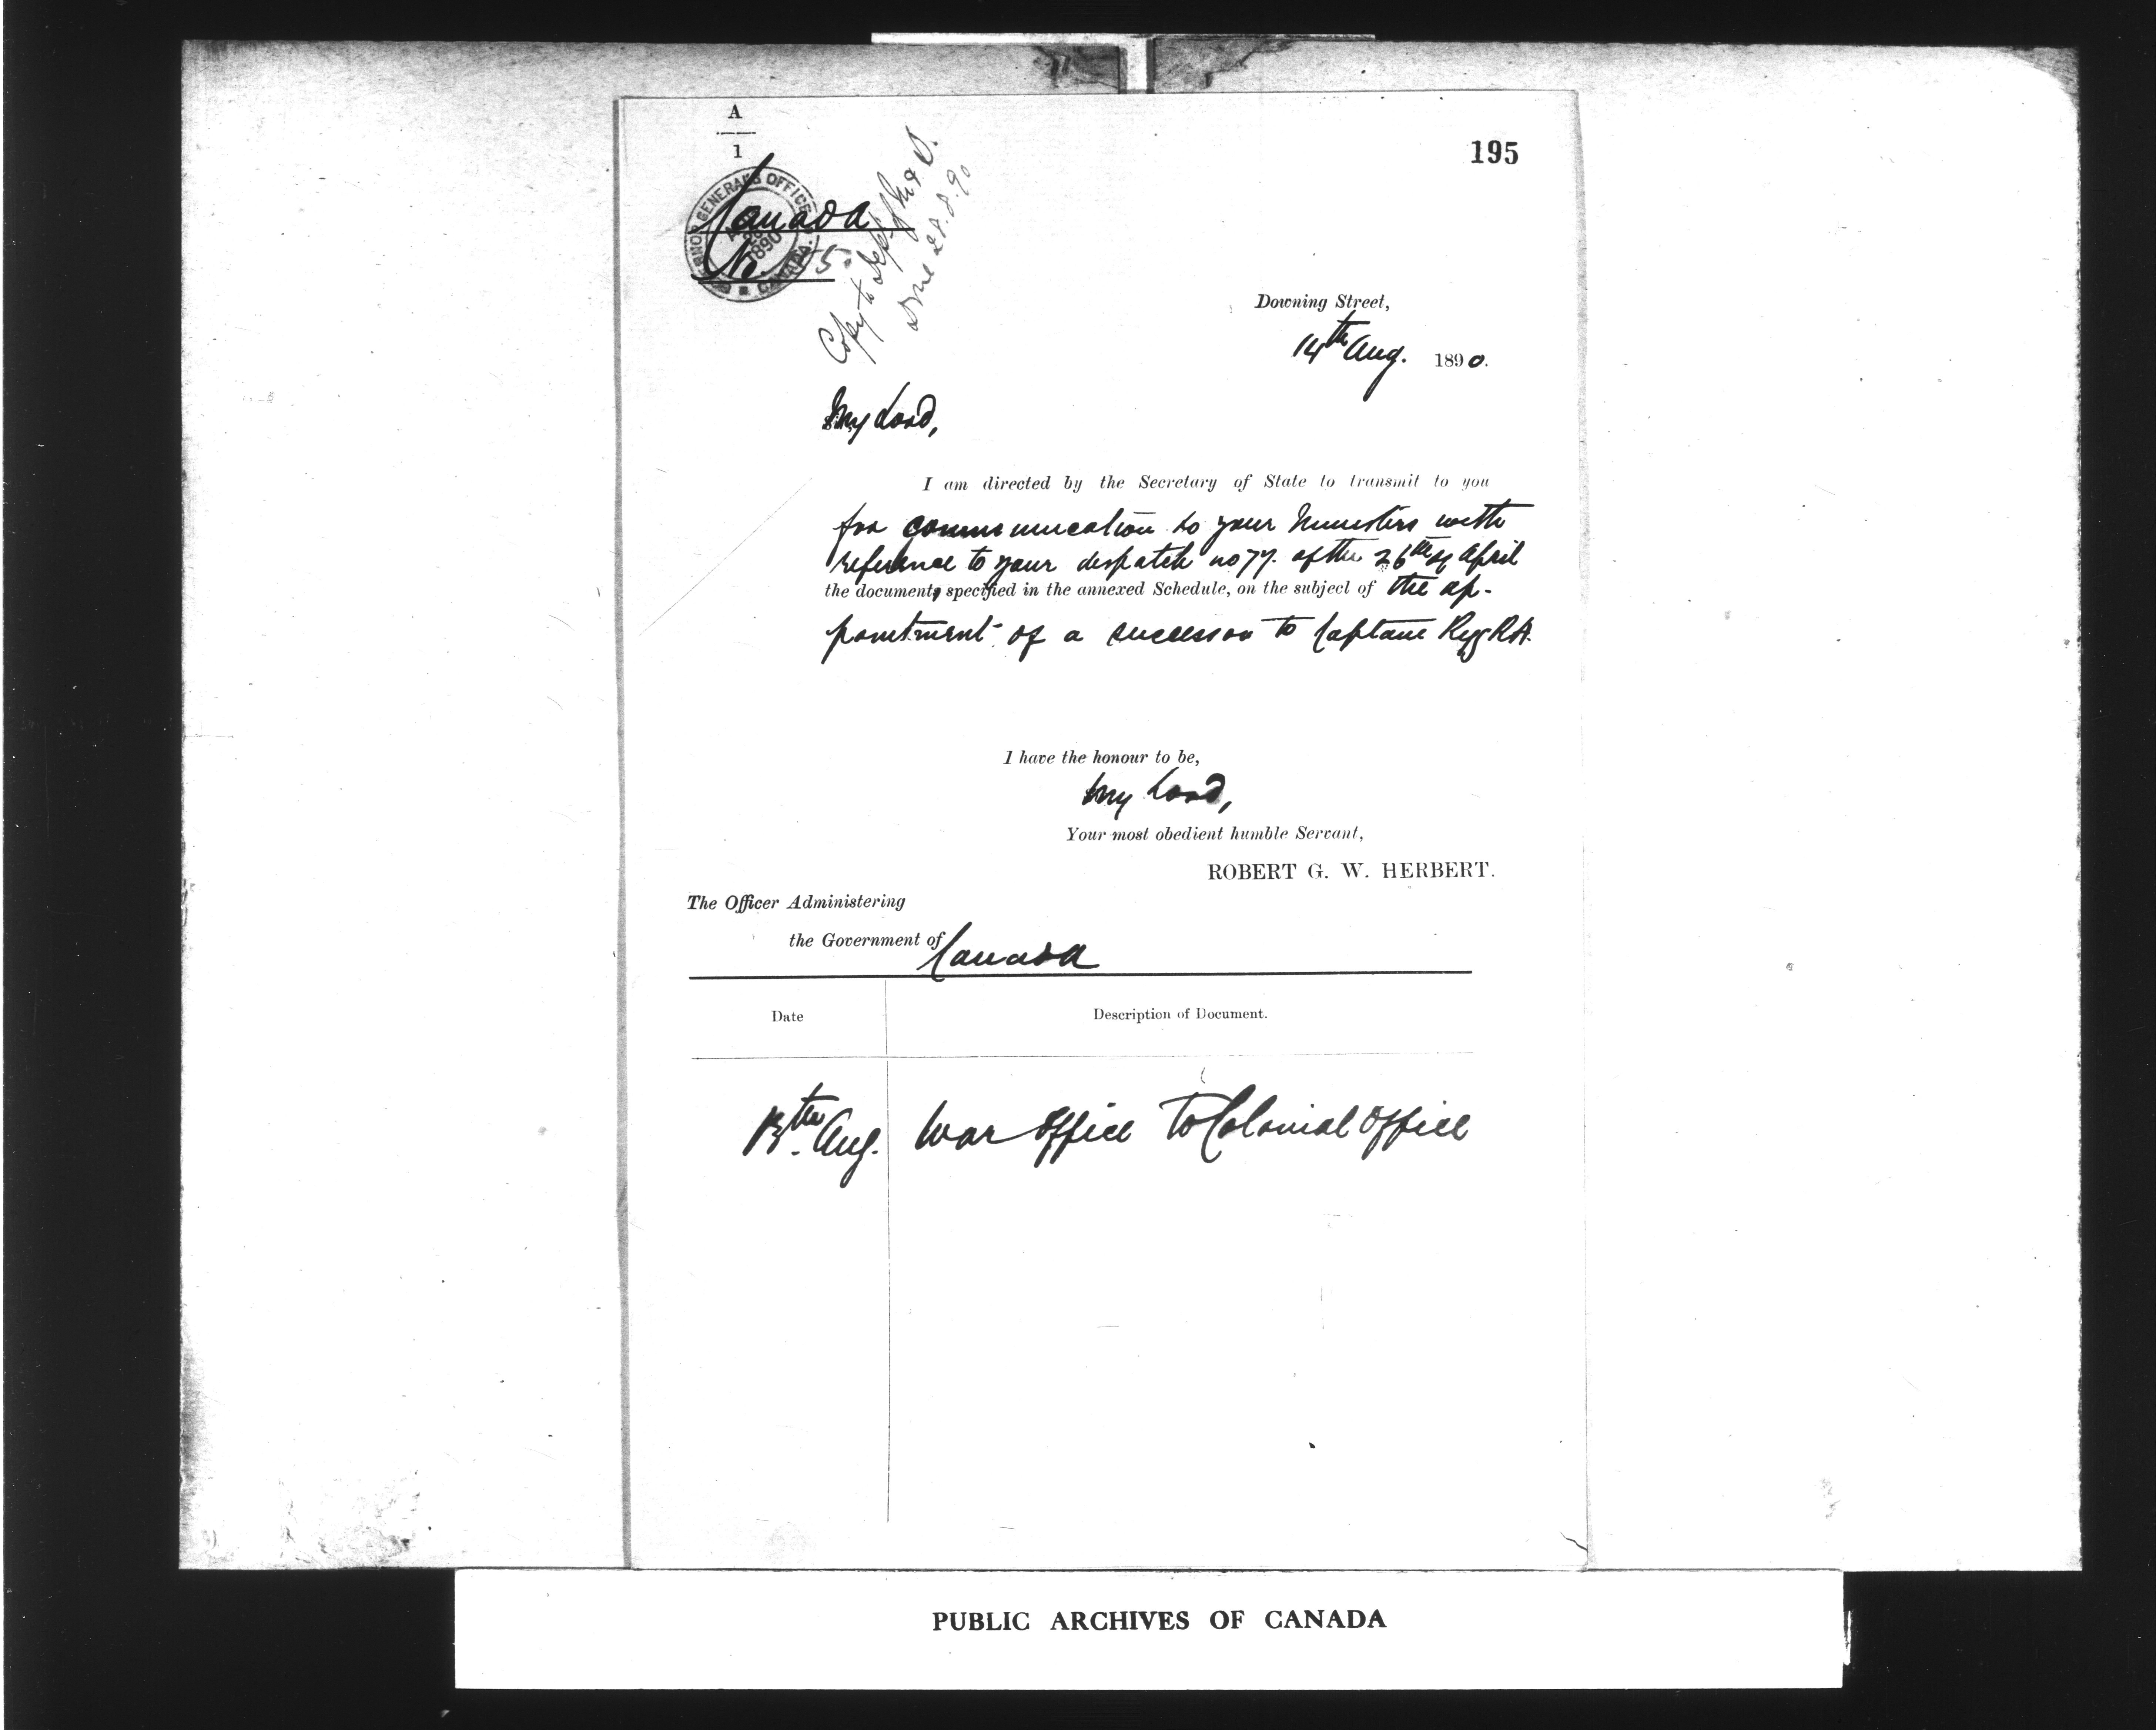 A
1
195
GOVERNOR GENERAL'S OFFICE
1890
CANADA.
Canada
No.
Copy to
Done 28.8.90
Downing Street,
14th Aug. 1890.
My Lord,
I am directed by the Secretary of State to transmit to you
for communication to your Ministers with
reference to your despatch no 77. of the 26th of April
the document, specified in the annexed Schedule, on the subject of the ap-
pointment of a successor to Captain R.A.
I have the honour to be,
My Lord,
Your most obedient humble Servant,
ROBERT G. W. HERBERT.
The Officer Administering
the Government of Canada
Date Description of Document.
13th Aug. War Office to Colonial Office
PUBLIC ARCHIVES OF CANADA